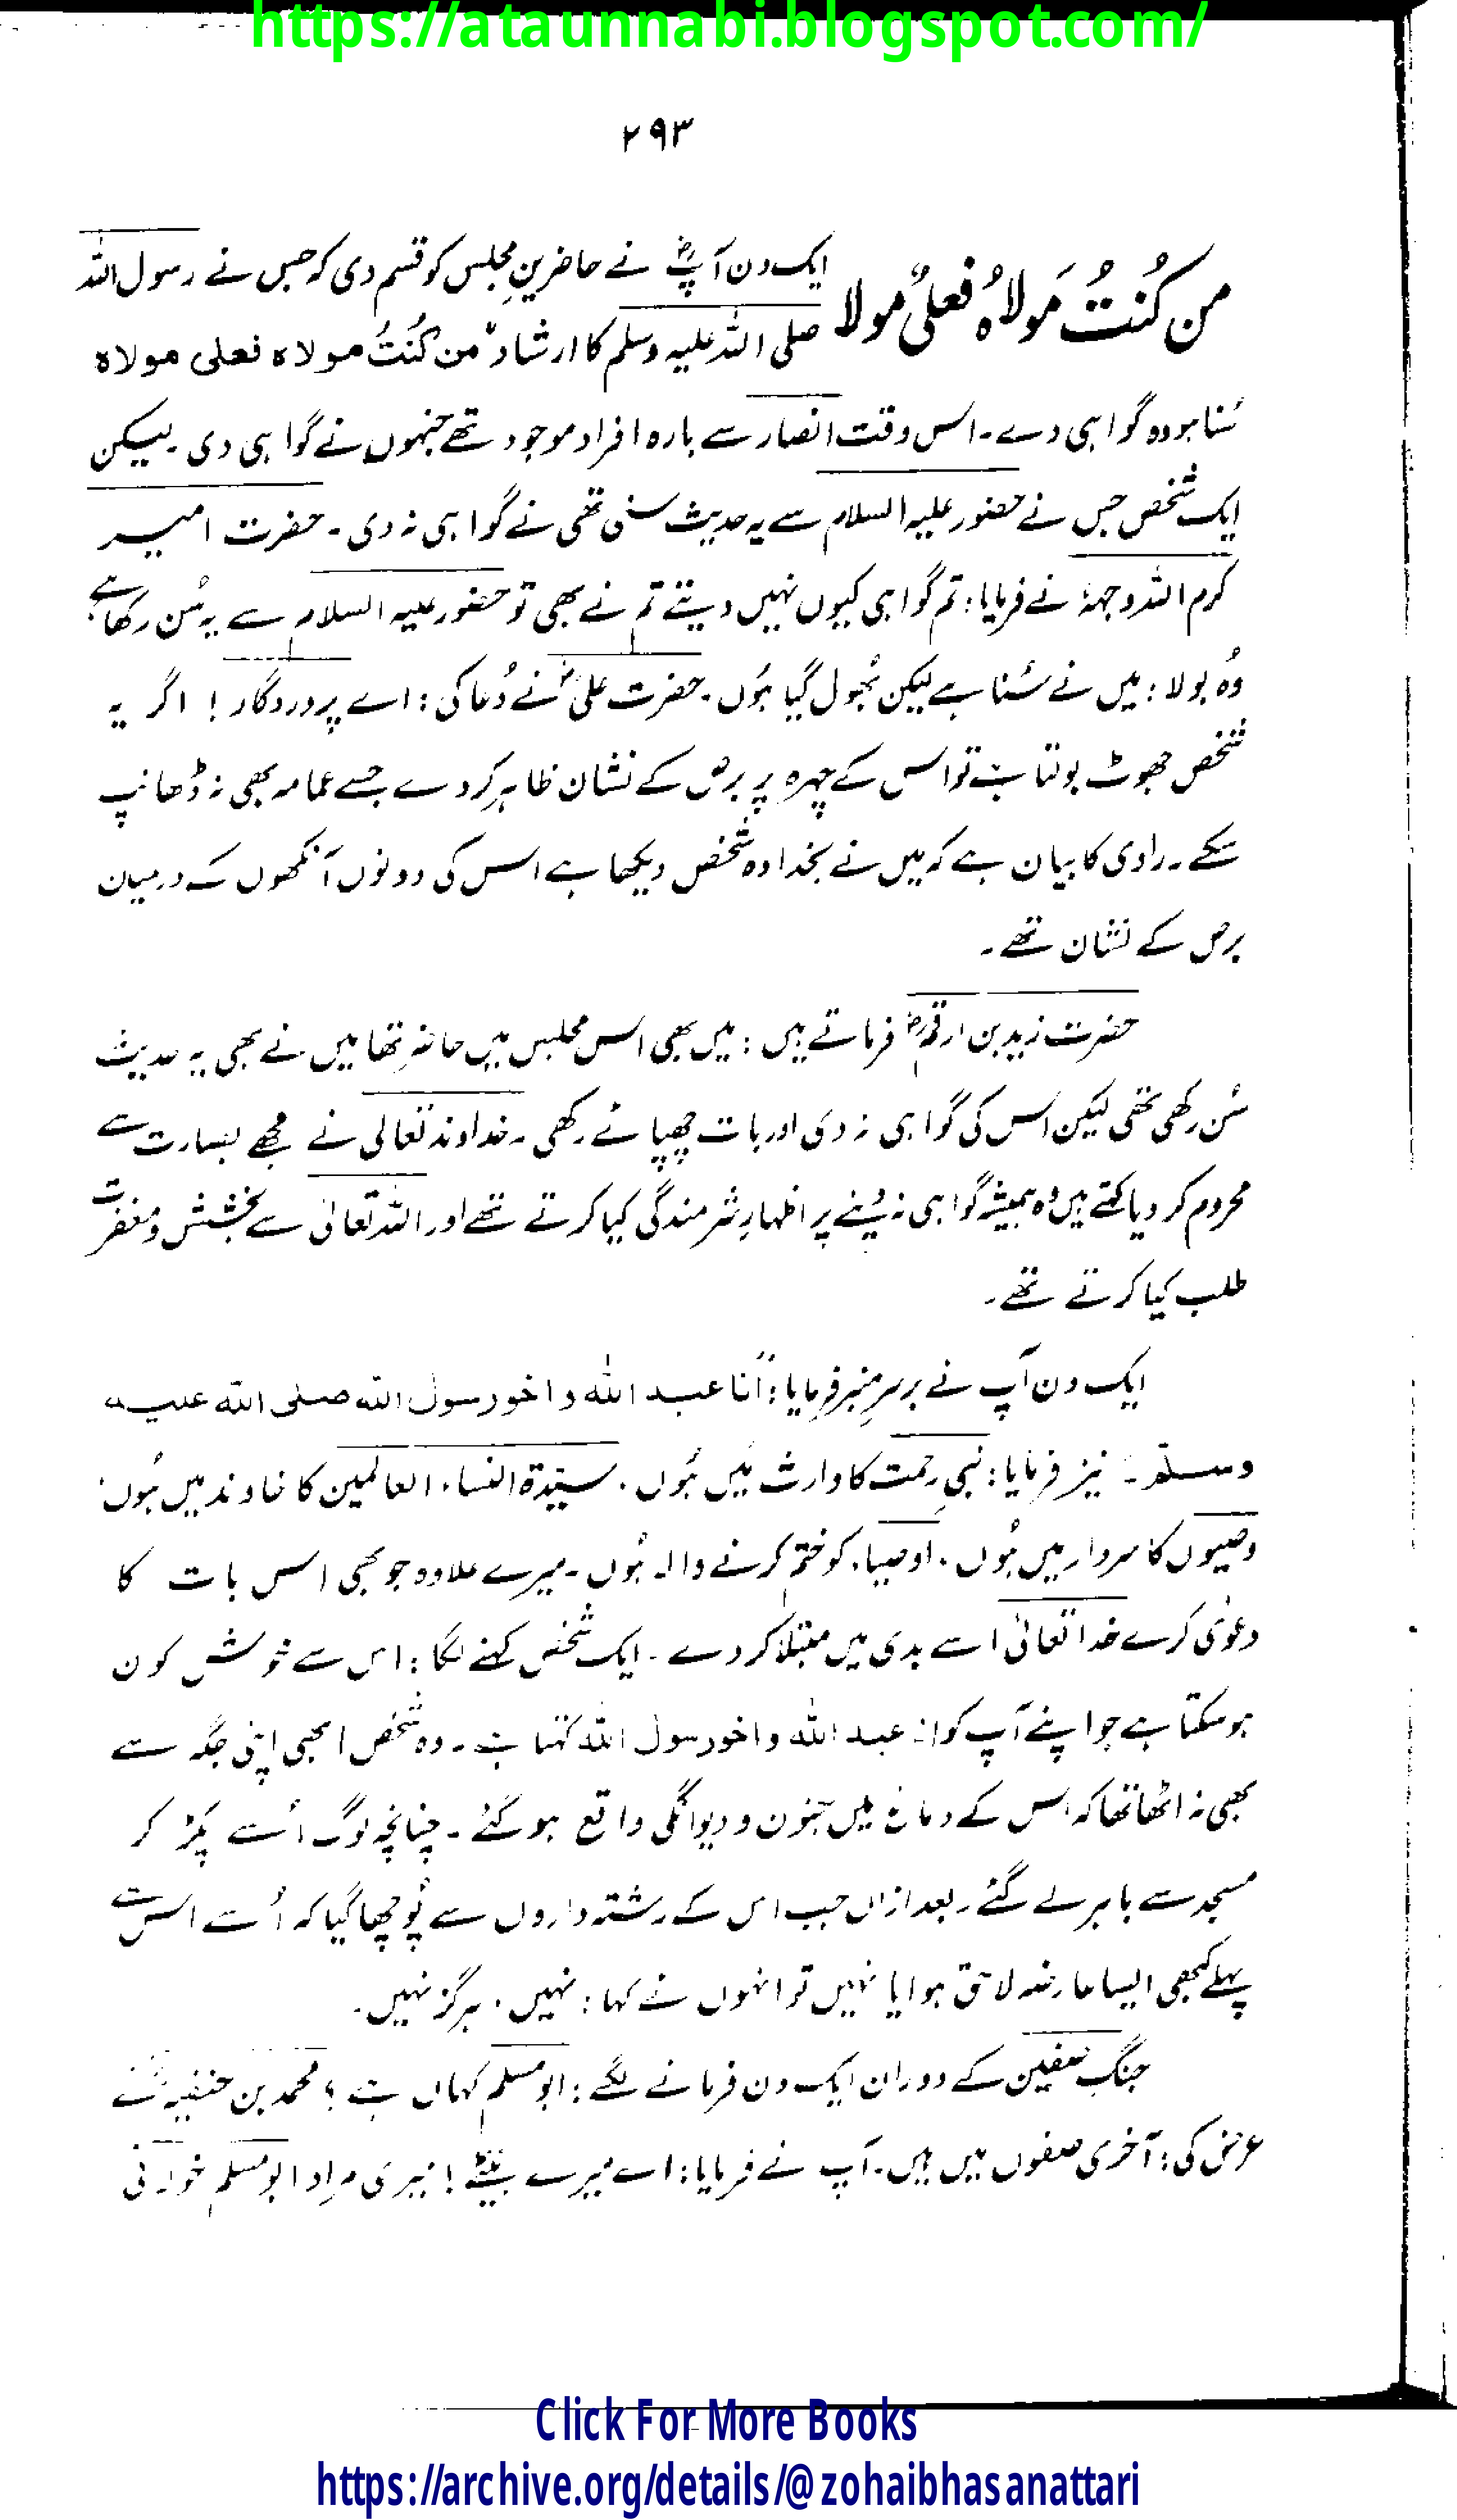 https://ataunnabi.blogspot.com/
۲۹۳
من کُنتُ مَولاہُ فعلیٌ مولا
ایک دن آپؓ نے حاضرینِ مجلس کو قسم دی کہ جس نے رسول اللہ
صلی اللہ علیہ وسلم کا ارشاد "من کُنتُ مولاہ فعلی مولاہ
سُنا ہو وہ گواہی دے۔ اس وقت انصار سے بارہ افراد موجود تھے جنہوں نے گواہی دی۔ لیکن
ایک شخص جس نے حضور علیہ السلام سے یہ حدیث سنی تھی نے گواہی نہ دی۔ حضرت امیر
کرم اللہ وجہہٗ نے فرمایا: تم گواہی کیوں نہیں دیتے تم نے بھی تو حضور علیہ السلام سے یہ سُن رکھا ہے
وُہ بولا: میں نے سُنا ہے لیکن بُھول گیا ہُوں۔ حضرت علیؓ نے دُعا کی: اے پروردگار! اگر یہ
شخص جھوٹ بولتا ہے تو اس کے چہرہ پر برص کے نشان ظاہر کر دے جسے عمامہ بھی نہ ڈھانپ
سکے۔ راوی کا بیان ہے کہ میں نے بخدا وہ شخص دیکھا ہے اس کی دونوں آنکھوں کے درمیان
برص کے نشان تھے۔
حضرت زید بن ارقمؓ فرماتے ہیں: میں بھی اس مجلس میں حاضر تھا میں نے بھی یہ حدیث
سُن رکھی تھی لیکن اس کی گواہی نہ دی اور بات چھپائے رکھی۔ خداوند تعالیٰ نے مجھے بصارت سے
محروم کر دیا کہتے ہیں وُہ ہمیشہ گواہی نہ دینے پر اظہارِ شرمندگی کیا کرتے تھے اور اللہ تعالیٰ سے بخشش و مغفرت
طلب کیا کرتے تھے۔
ایک دن آپ نے برسرِ منبر فرمایا: "انا عبد اللہ و اخو رسول اللہ صلی اللہ علیہ
وسلم۔ نیز فرمایا: نبیِ رحمت کا وارث میں ہُوں۔ سیدۃ النساء العالمین کا خاوند میں ہُوں،
وصیوں کا سردار میں ہُوں۔ اوصیاء کو ختم کرنے والا ہُوں۔ میرے علاوہ جو بھی اس بات کا
دعویٰ کرے خدا تعالیٰ اسے بدی میں مبتلا کر دے۔ ایک شخص کہنے لگا: اس سے خوش کون
ہو سکتا ہے جو اپنے آپ کو انا عبد اللہ و اخو رسول اللہ کہتا ہے۔ وہ شخص ابھی اپنی جگہ سے
بھی نہ اٹھا تھا کہ اس کے دماغ میں جنون و دیوانگی واقع ہو گئے۔ چنانچہ لوگ اُسے پکڑ کر
مسجد سے باہر لے گئے۔ بعد ازاں جب اس کے رشتہ داروں سے پُوچھا گیا کہ اُسے اس سے
پہلے کبھی ایسا عارضہ لاحق ہوا یا نہیں تو انہوں نے کہا: نہیں۔ ہرگز نہیں۔
جنگِ صفین کے دوران ایک دن فرمانے لگے: ابو مسلم کہاں ہے؟ محمد بن حنفیہ نے
عرض کی: آخری صفوں میں ہیں۔ آپ نے فرمایا: اے میرے بیٹے! میری مراد ابو مسلم خولانی
Click For More Books
https://archive.org/details/@zohaibhasanattari